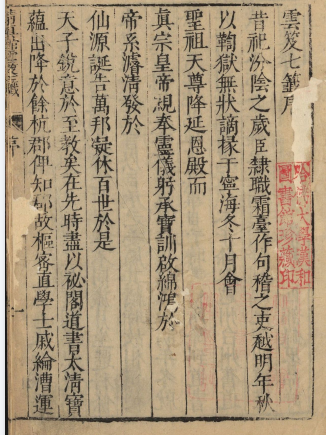 雲笈七籤序
昔祀汾陰之歲臣隸職霜臺作句稽之吏越明年秋
以鞫獄無狀謫掾于寧海冬十月會
聖祖天尊降延恩殿而
真宗皇帝親奉靈儀躬承寶訓啟綿鴻於
帝系濬清發於
仙源誕告萬邦凝休百世於是
天子銳意於至教矣在先時盡以祕閣道書太清寶
蘊出降於餘杭郡俾知郡故樞密直學士戚綸漕運
哈佛大學漢和
圖書館珍藏印